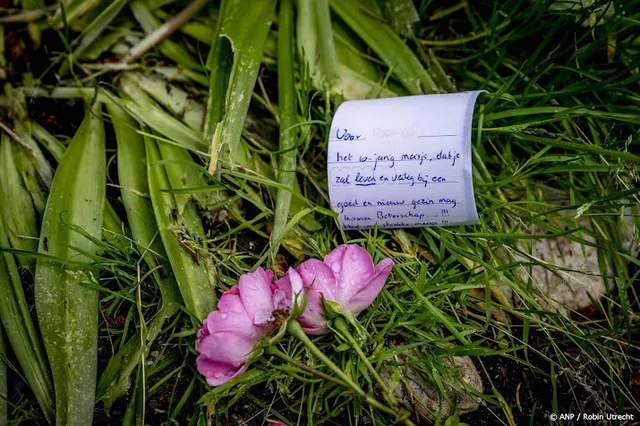 Voor
het 10-jarig meisje, dat je
zal leven en veilig bij een
goed en nieuw gezin mag
komen Beterschap ... !!!
!!!
© ANP / Robin Utrecht